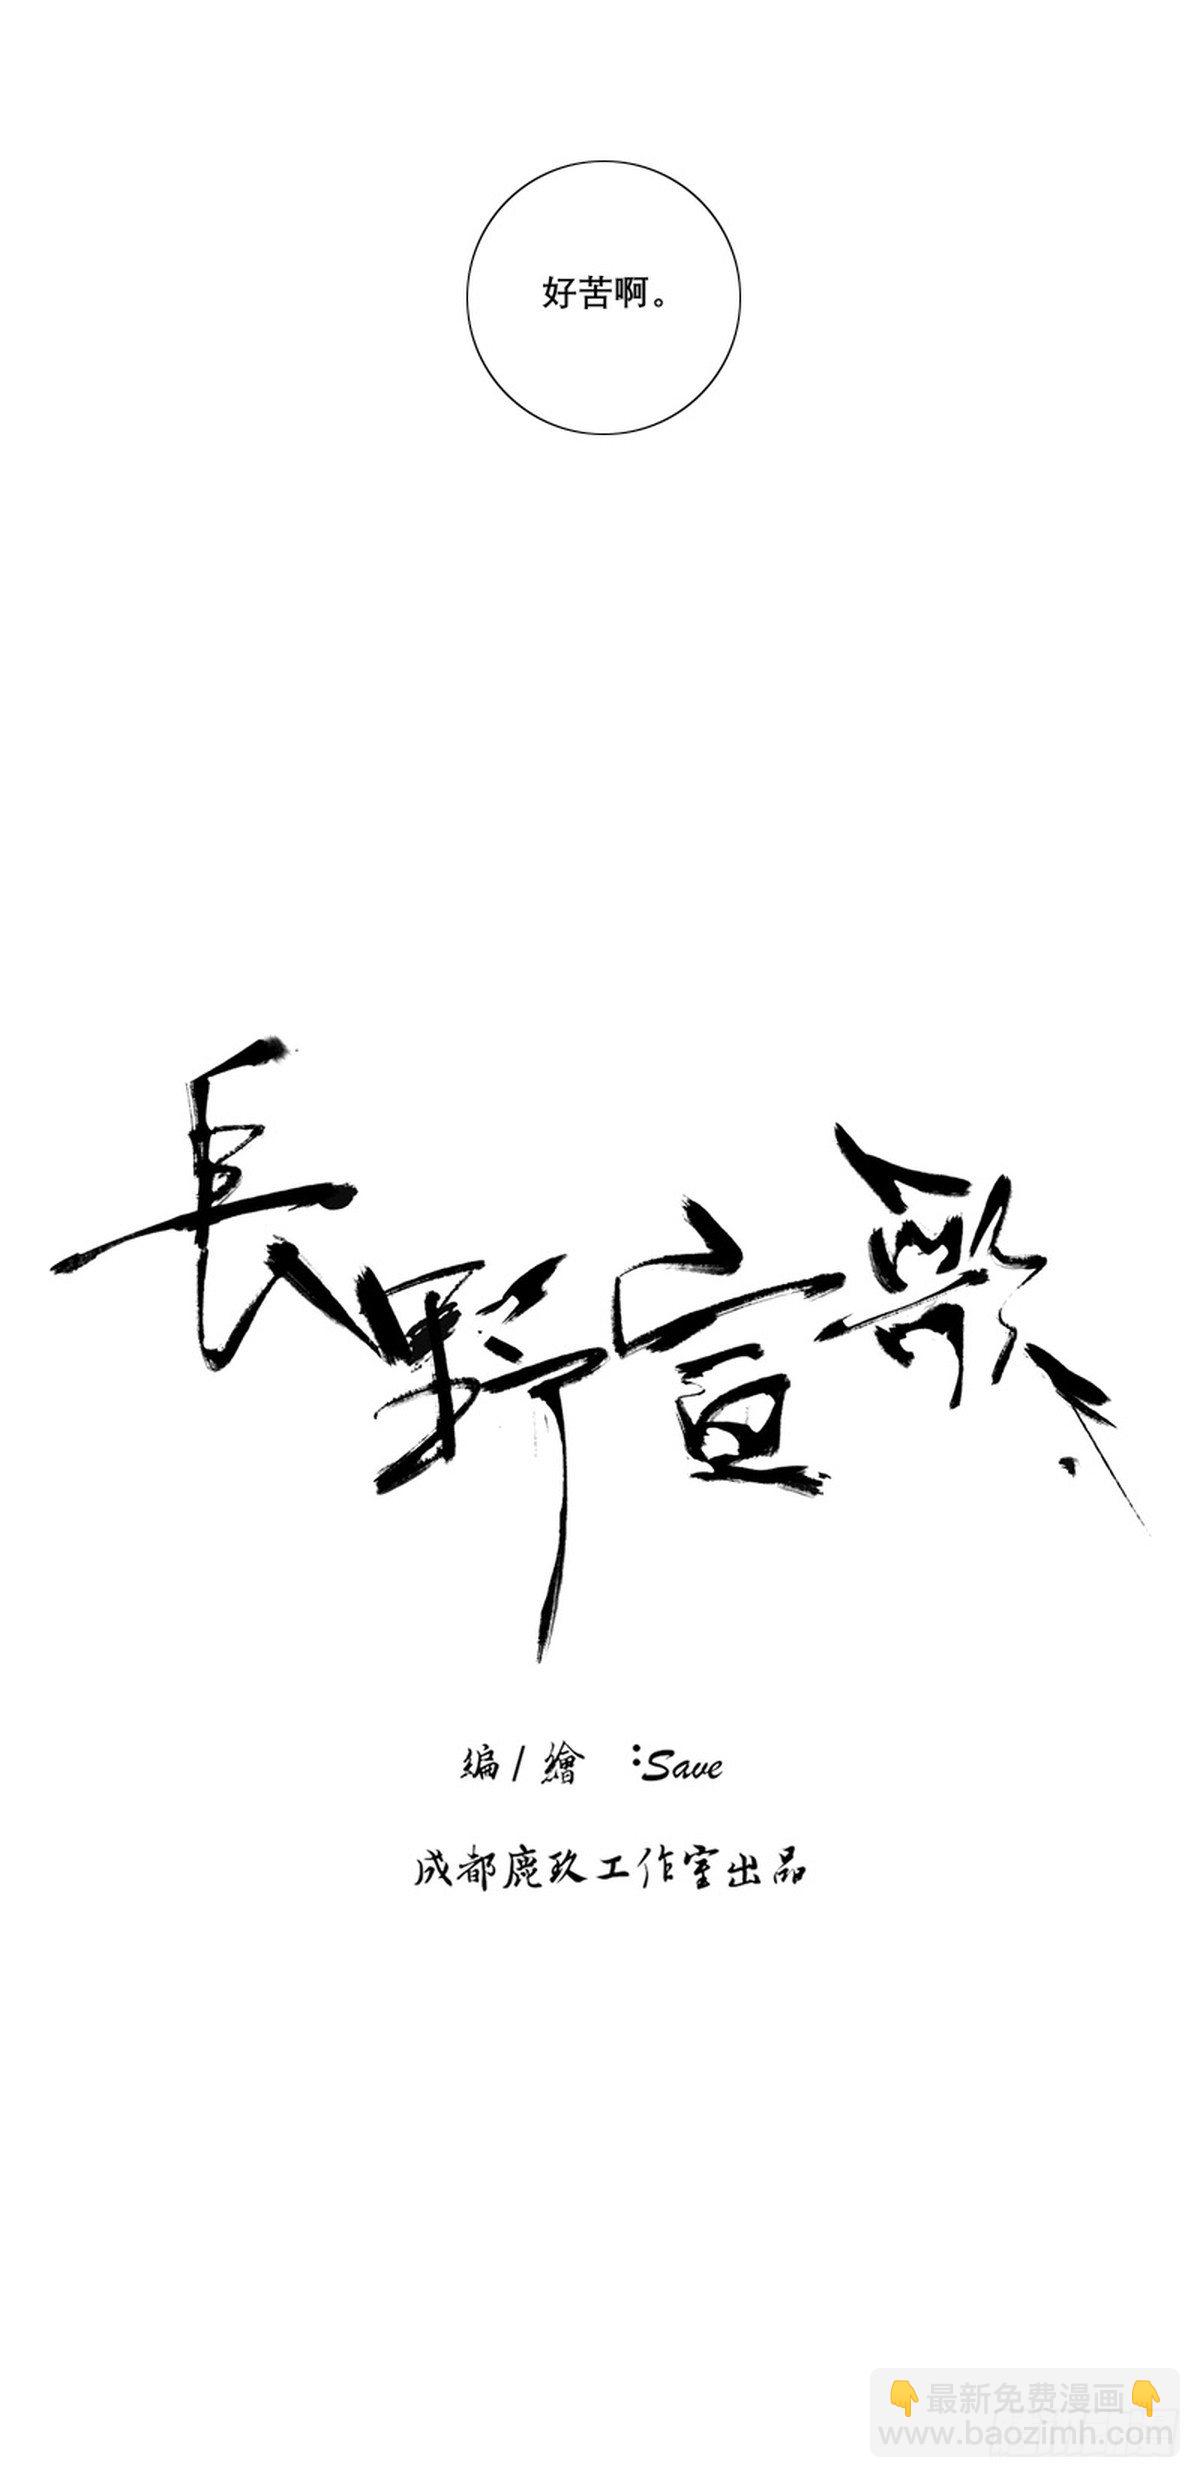 好苦啊。
長野宣歌
編/繪 :Save
成都鹿玖工作室出品
👇最新免费漫画👇
www.baozimh.com